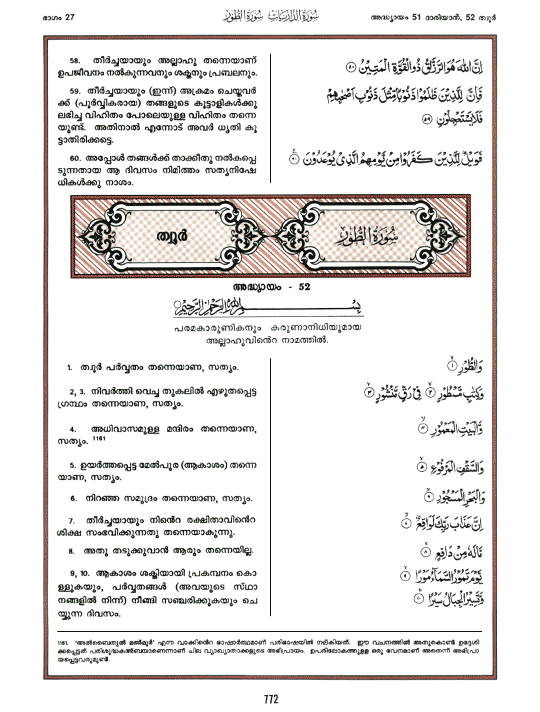 ഭാഗം 27
سُورَةُ الذَّارِيَات سُورَةُ الطُّور
അദ്ധ്യായം 51 ദാരിയാത്, 52 ത്വൂർ
58. തീർച്ചയായും അല്ലാഹു തന്നെയാണ്
ഉപജീവനം നൽകുന്നവനും ശക്തനും പ്രബലനും.
إِنَّ اللَّهَ هُوَ الرَّزَّاقُ ذُو الْقُوَّةِ الْمَتِينُ ۝٥٨
59. തീർച്ചയായും (ഇന്ന്) അക്രമം ചെയ്തവർ
ക്ക് (പൂർവ്വികരായ) തങ്ങളുടെ കൂട്ടാളികൾക്കു
ലഭിച്ച വിഹിതം പോലെയുള്ള വിഹിതം തന്നെ
യുണ്ട്. അതിനാൽ എന്നോട് അവർ ധൃതി കൂ
ട്ടാതിരിക്കട്ടെ.
فَإِنَّ لِلَّذِينَ ظَلَمُوا ذَنُوبًا مِّثْلَ ذَنُوبِ أَصْحَابِهِمْ
فَلَا يَسْتَعْجِلُونِ ۝٥٩
60. അപ്പോൾ തങ്ങൾക്ക് താക്കീതു നൽകപ്പെ
ടുന്നതായ ആ ദിവസം നിമിത്തം സത്യനിഷേ
ധികൾക്കു നാശം.
فَوَيْلٌ لِّلَّذِينَ كَفَرُوا مِن يَوْمِهِمُ الَّذِي يُوعَدُونَ ۝٦٠
ത്വൂർ
سُورَةُ الطُّورِ
അദ്ധ്യായം - 52
بِسْمِ اللَّهِ الرَّحْمَٰنِ الرَّحِيمِ
പരമകാരുണികനും കരുണാനിധിയുമായ
അല്ലാഹുവിന്റെ നാമത്തിൽ.
1. ത്വൂർ പർവ്വതം തന്നെയാണ, സത്യം.
وَالطُّورِ ۝١
2, 3. നിവർത്തി വെച്ച തുകലിൽ എഴുതപ്പെട്ട
ഗ്രന്ഥം തന്നെയാണ, സത്യം.
وَكِتَابٍ مَّسْطُورٍ ۝٢ فِي رَقٍّ مَّنشُورٍ ۝٣
4. അധിവാസമുള്ള മന്ദിരം തന്നെയാണ,
സത്യം. 1161
وَالْبَيْتِ الْمَعْمُورِ ۝٤
5. ഉയർത്തപ്പെട്ട മേൽപുര (ആകാശം) തന്നെ
യാണ, സത്യം.
وَالسَّقْفِ الْمَرْفُوعِ ۝٥
6. നിറഞ്ഞ സമുദ്രം തന്നെയാണ, സത്യം.
وَالْبَحْرِ الْمَسْجُورِ ۝٦
7. തീർച്ചയായും നിന്റെ രക്ഷിതാവിന്റെ
ശിക്ഷ സംഭവിക്കുന്നതു തന്നെയാകുന്നു.
إِنَّ عَذَابَ رَبِّكَ لَوَاقِعٌ ۝٧
8. അതു തടുക്കുവാൻ ആരും തന്നെയില്ല.
مَّا لَهُ مِن دَافِعٍ ۝٨
9, 10. ആകാശം ശക്തിയായി പ്രകമ്പനം കൊ
ള്ളുകയും, പർവ്വതങ്ങൾ (അവയുടെ സ്ഥാ
നങ്ങളിൽ നിന്ന്) നീങ്ങി സഞ്ചരിക്കുകയും ചെ
യ്യുന്ന ദിവസം.
يَوْمَ تَمُورُ السَّمَاءُ مَوْرًا ۝٩
وَتَسِيرُ الْجِبَالُ سَيْرًا ۝١٠
1161. 'അൽബൈത്തുൽ മഅ്മൂർ' എന്ന വാക്കിന്റെ ഭാഷാർത്ഥമാണ് പരിഭാഷയിൽ നല്കിയത്. ഈ വചനത്തിൽ അതുകൊണ്ട് ഉദ്ദേശി
ക്കപ്പെട്ടത് പരിശുദ്ധകഅ്ബയാണെന്നാണ് ചില വ്യാഖ്യാതാക്കളുടെ അഭിപ്രായം. ഉപരിലോകത്തുള്ള ഒരു ഭവനമാണ് അതെന്ന് അഭിപ്രാ
യപ്പെട്ടവരുമുണ്ട്.
772